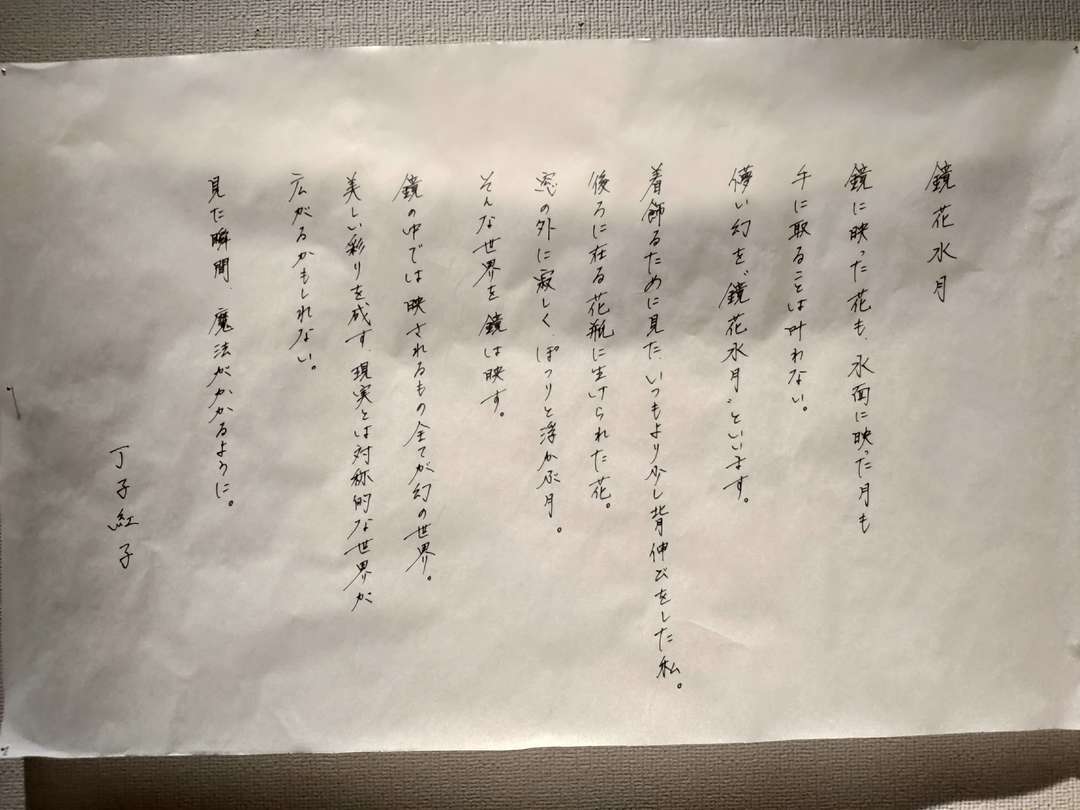 鏡花水月
鏡に映った花も、水面に映った月も
手に取ることは叶わない。
儚い幻を“鏡花水月”といいます。
着飾るために見た、いつもより少し背伸びをした私。
後ろに在る花瓶に生けられた花。
窓の外に寂しくぽつりと浮かぶ月。
そんな世界を鏡は映す。
鏡の中では映されるもの全てが幻の世界。
美しい彩りを成す、現実とは対称的な世界が
広がるかもしれない。
見た瞬間、魔法がかかるように。
丁子紅子